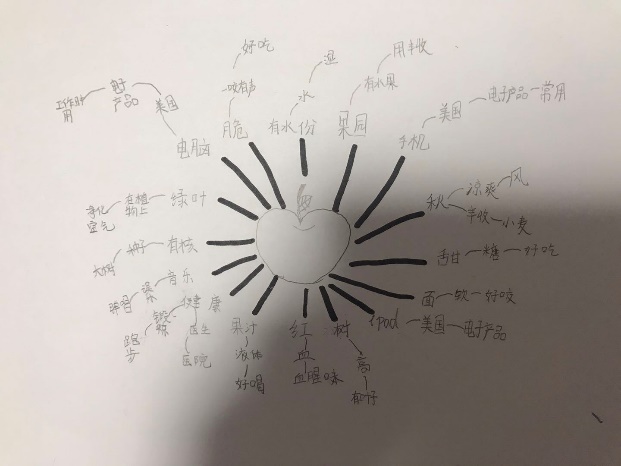 好吃
湿
用丰收
一咬有声
水
有水果
脆
有水份
果园
手机
美国
电子产品
常用
电脑
美国
电子
产品
工作时
用
绿叶
在植
物上
净化
空气
有核
种子
大树
音乐
健康
锻
炼
跑
步
医生
医院
果汁
液体
好喝
红
血
血腥味
树
高
ipad
美国
电子产品
面
软
好咬
甜
糖
好吃
秋
凉爽
风
丰收
小麦